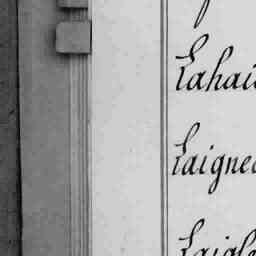 Lahai
Laigne
Laigl